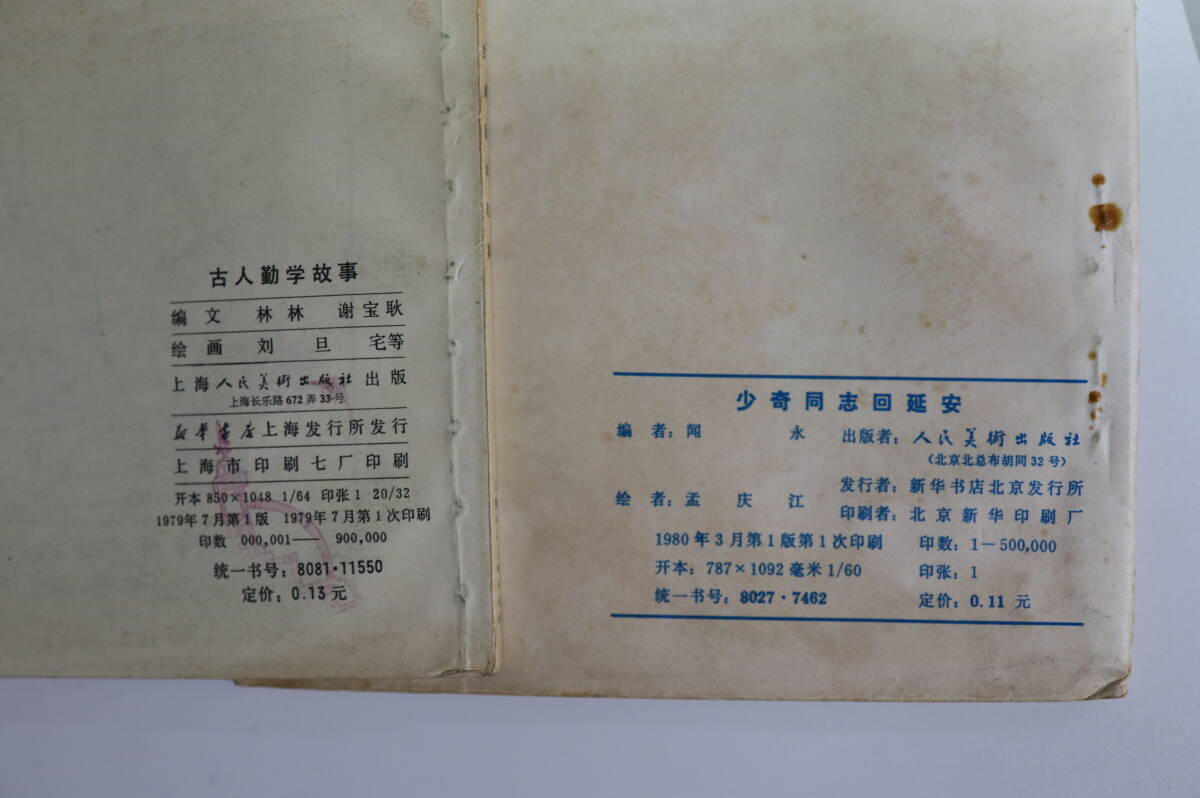 古人勤学故事
编文 林林 谢宝耿
绘画 刘旦宅等
上海人民美術出版社出版
上海长乐路672弄33号
新华书店上海发行所发行
上海市印刷七厂印刷
开本 850×1048 1/64 印张 1 20/32
1979年7月第1版 1979年7月第1次印刷
印数 000,001—900,000
统一书号：8081·11550
定价：0.13元
少奇同志回延安
编者：闻永 出版者：人民美術出版社
（北京北总布胡同32号）
绘者：孟庆江 发行者：新华书店北京发行所
印刷者：北京新华印刷厂
1980年3月第1版第1次印刷 印数：1—500,000
开本：787×1092毫米1/60 印张：1
统一书号：8027·7462 定价：0.11元